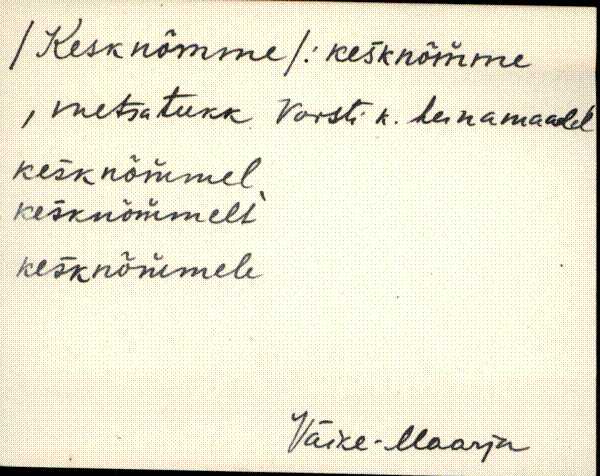 /Kesknõmme/: kesknõm̆me
, metsatukk Vorsti k. heinamaadel
kesknõm̆mel
kesknõm̆melt
kesknõm̆mele
Väike-Maarja